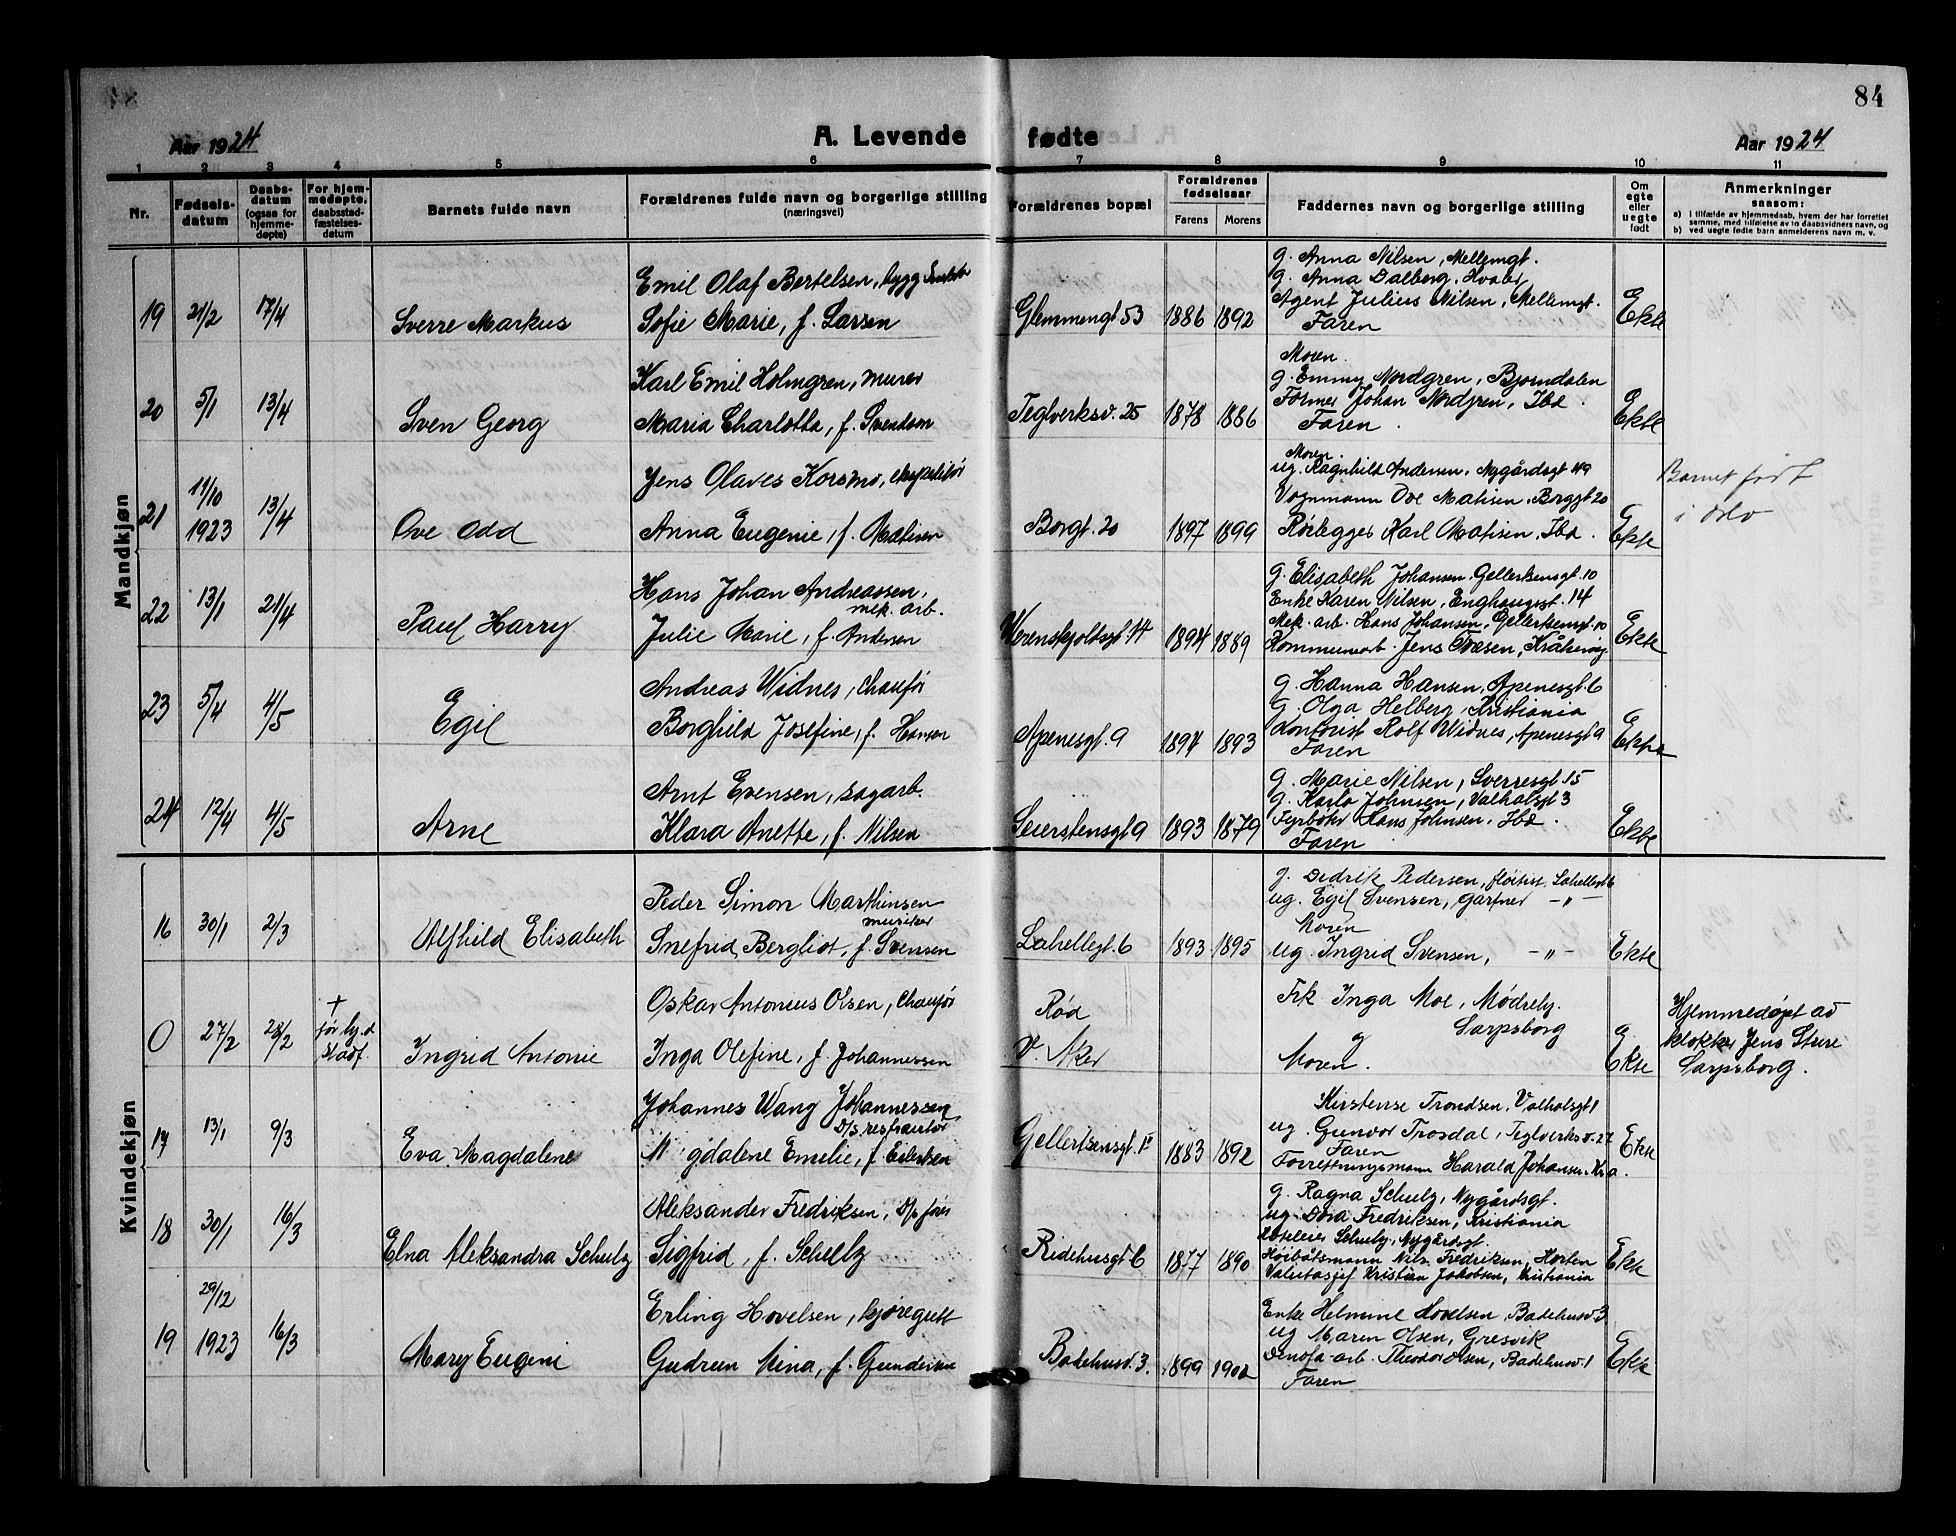 84
Aar 1924 A. Levende fødte Aar 1924
1 2 3 4 5 6 7 8 9 10 11
Nr.
Fødsels-
datum
Daabs-
datum
(ogsaa for
hjemme-
døpte)
For hjem-
medøpte,
daabsstad-
fæstelses-
datum
Barnets fulde navn
Forældrenes fulde navn og borgerlige stilling
(næringsvei)
Forældrenes bopæl
Forældrenes
fødselsaar
Farens Morens
Faddernes navn og borgerlige stilling
Om
egte
eller
uegte
født
Anmerkninger
saasom:
a) i tilfælde av hjemmedaab, hvem der har forrettet
samme, med tilføielse av to daabsvidners navn, og
b) ved uegte fødte barn anmelderens navn m. v.
Mandkjøn
19 21/2 17/4 Sverre Markus
Emil Olaf Bertelsen, bygg
Sofie Marie, f. Larsen
Glemmengt 53 1886 1892
g. Anna Nilsen, Mellemgt.
g. Anna Dalberg, Hvaler
Agent Julius Nilsen, Mellemgt.
Faren
Ekte
20 5/1 13/4 Sven Georg
Karl Emil Holmgren, murer
Maria Charlotta, f. Svendson
Teglverksv. 25 1878 1886
Moren.
g. Emmy Nordgren, Bjorndalen
Former Johan Nordgren, Ibd.
Faren.
Ekte
21 11/10 1923 13/4 Ove Odd
Jens Olaves Korsmo, ekspeditør
Anna Eugenie, f. Matisen
Borgt. 20 1897 1899
Moren.
ug. Ragnhild Andersen, Nygårdsgt 49
Vognmann Ove Matisen, Borggt 20
Rørlegger Karl Matisen, Ibd.
Ekte
Barnet født
i Oslo
22 13/1 21/4 Paul Harry
Hans Johan Andreassen,
mek. arb.
Julie Marie, f. Andersen
Werenskjoldsgt 14 1894 1889
g. Elisabeth Johansen, Gellertsensgt. 10
Enke Karen Nilsen, Enghaugsgt. 14
Mek. arb. Hans Johansen, Gellertsensgt. 10
Kommunearb. Jens Ovesen, Kråkerøy
Ekte
23 5/4 4/5 Egil
Andreas Widnes, chaufør
Borghild Josefine, f. Hansen
Apenesgt. 9 1894 1893
g. Hanna Hansen, Apenesgt. 6
g. Olga Helberg, Kristiania
Kontorist Rolf Widnes, Apenesgt 9
Faren
Ekte
24 12/4 4/5 Arne
Arnt Evensen, sagarb.
Klara Anette, f. Nilsen
Seierstensgt 9 1893 1879
g. Marie Nilsen, Sverresgt 15
g. Karla Johnsen, Valhalsgt 3
Fyrbøter Hans Johnsen, Ibd.
Faren
Ekte
Kvindekjøn
16 30/1 2/3 Alfhild Elisabeth
Peder Simon Marthinsen
musiker
Snefrid Bergliot, f. Svensen
Lahellegt. 6 1893 1895
g. Didrik Pedersen, fløitist, Lahellegt 6
ug. Egil Svensen, Gartner -"-
Moren
ug. Ingrid Svensen, -"-
Ekte
0 27/2 28/2 † før hj.d. stadf. Ingrid Antonie
Oskar Antonius Olsen, chaufør
Inga Olefine, f. Johannessen
Rød
V. Aker
Frk Inga Moe, Mødreby,
Sarpsborg
og
Moren.
Ekte
Hjemmedøpt av
klokker Jens Sture
Sarpsborg.
17 13/1 9/3 Eva Magdalene
Johannes Wang Johannessen
D/s. restauratør
M gdalene Emelie, f. Eilertsen
Gellertsensgt. 1883 1892
Kirstense Trondsen, Valhalsgt 1
ug. Gunvor Trosdal, Teglverksv. 27
Faren
Forretningsmann Harald Johansen, Kr.a.
Ekte
18 30/1 16/3 Elna Aleksandra Schulz
Aleksander Fredriksen, D/s fører
Sigfrid, f. Schulz
Ridehusgt 6 1877 1890
g. Ragna Schulz, Nygårdsgt.
ug. Dora Fredriksen, Kristiania
Schulz, Nygårdsgt.
Høibåtsmann Nils Fredriksen, Horten
Valutasjef Kristian Jakobsen, Kristiania
Ekte
19 29/12 1923 16/3 Mary Eugeni
Erling Hovelsen, kjøregutt
Gudrun Mina, f. Gundersen
Badehusv. 3. 1899 1902
Enke Helmine Hovelsen, Badehusv. 3
ug Maren Olsen, Gresvik
Denofa-arb. Theodor Olsen, Badehusv. 1
Faren
Ekte